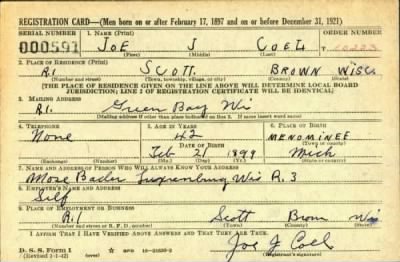 REGISTRATION CARD—(Men born on or after February 17, 1897 and on or before December 31, 1921)
SERIAL NUMBER 1. NAME (Print) ORDER NUMBER
000591 JOE J COEL
(First) (Middle) (Last)
2. PLACE OF RESIDENCE (Print)
R1 SCOTT BROWN WISC.
(Number and street) (Town, township, village, or city) (County) (State)
[THE PLACE OF RESIDENCE GIVEN ON THE LINE ABOVE WILL DETERMINE LOCAL BOARD
JURISDICTION; LINE 2 OF REGISTRATION CERTIFICATE WILL BE IDENTICAL]
3. MAILING ADDRESS
R1. Green Bay Wi
[Mailing address if other than place indicated on line 2. If same insert word same]
4. TELEPHONE 5. AGE IN YEARS 6. PLACE OF BIRTH
None 42 MENOMINEE
DATE OF BIRTH (Town or county)
Feb 21 1899 Mich
(Exchange) (Number) (Mo.) (Day) (Yr.) (State or country)
7. NAME AND ADDRESS OF PERSON WHO WILL ALWAYS KNOW YOUR ADDRESS
Luxemburg Wis R.3
8. EMPLOYER'S NAME AND ADDRESS
Self
9. PLACE OF EMPLOYMENT OR BUSINESS
R.1 Scott Brown Wis
(Number and street or R. F. D. number) (Town) (County) (State)
I AFFIRM THAT I HAVE VERIFIED ABOVE ANSWERS AND THAT THEY ARE TRUE.
D. S. S. Form 1
(Revised 1-1-42) (over)
Joe J Coel
(Registrant's signature)